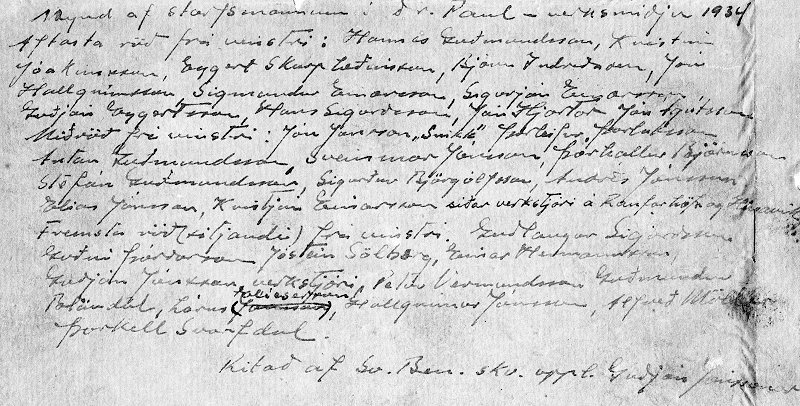 Mynd af starfsmönnum í Dr. Paul-verksmiðju 1934
Aftasta röð frá vinstri: Hannes Guðmundsson, Kristinn
Jóakimsson, Eggert Skarphéðinsson, Björn Indriðason, Jón
Hallgrímsson, Sigmundur Einarsson, Sigurjón Einarsson,
Guðjón Eggertsson, Hans Sigurðsson, Jón Hjartar Jón Ágústsson
Miðröð frá vinstri: Jón Jónsson, Þorleifur Þorláksson
Anton Guðmundsson, Sveinmar Jónsson, Þórhallur Björnsson
Stefán Guðmundsson, Sigurður Björgólfsson, Andrés Jónsson
Elías Jónsson, Kristján Einarsson síðar verkstjóri á Raufarhöfn og
Fremsta röð (sitjandi) frá vinstri. Guðlaugur Sigurðsson
Guðni Þórðarson Jósteinn Sólberg, Einar Hermannsson
Guðjón Jónsson verkstjóri, Pétur Vermundsson Guðmundur
Bíldudal, Lárus, Hallgrímur Jónsson, Alfreð Möller
Þorkell Svarfdal.
Ritað af Sv. Ben. skv. uppl. Guðjón Jónssonar